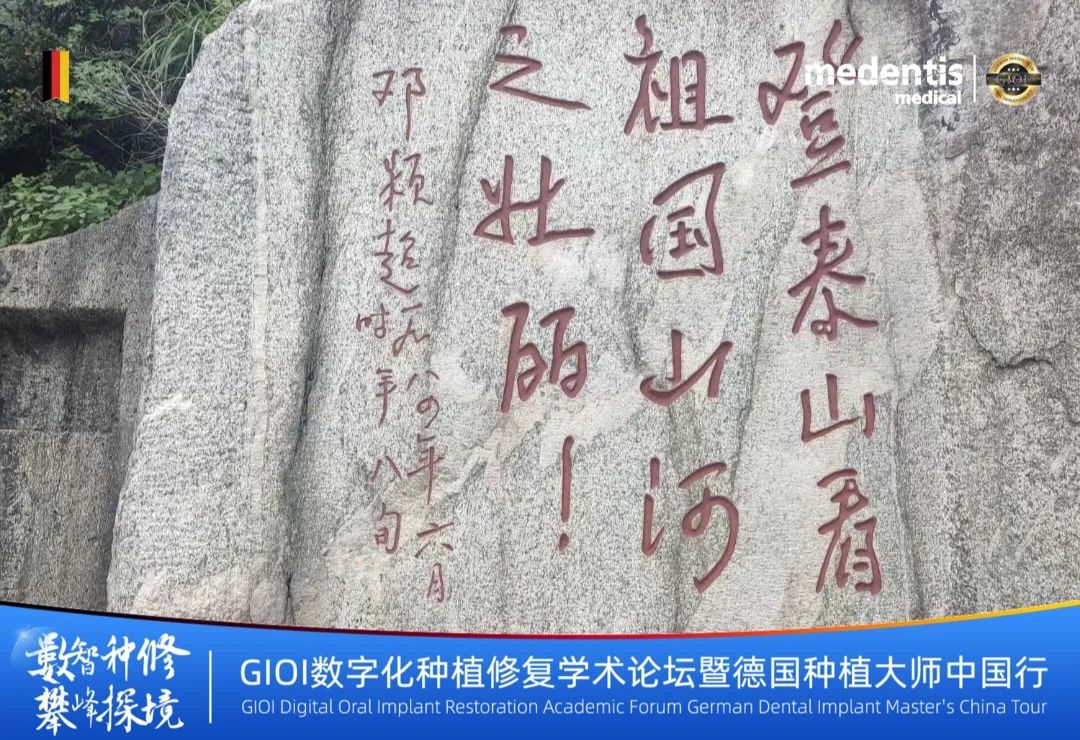 medentis
medical
登泰山看
祖国山河
之壮丽！
邓颖超一九八四年六月
时年八旬
数智种修
攀峰探境
GIOI数字化种植修复学术论坛暨德国种植大师中国行
GIOI Digital Oral Implant Restoration Academic Forum German Dental Implant Master's China Tour